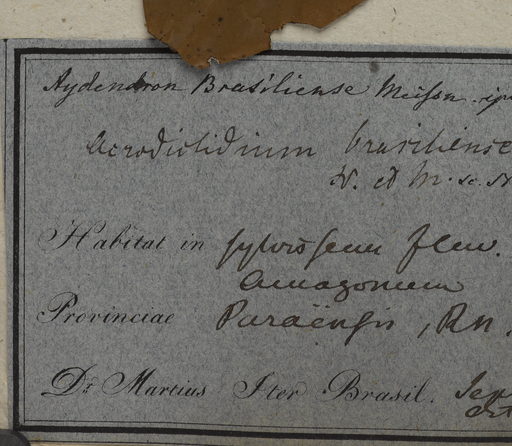 Aydendron Brasiliense Meissn.
Acrodiclidium brasiliense
N. et M. sc. st
Habitat in sylvis secus fluv.
Amazonum
Provinciae Paraënsis,
Dr. Martius Iter Brasil. Sep